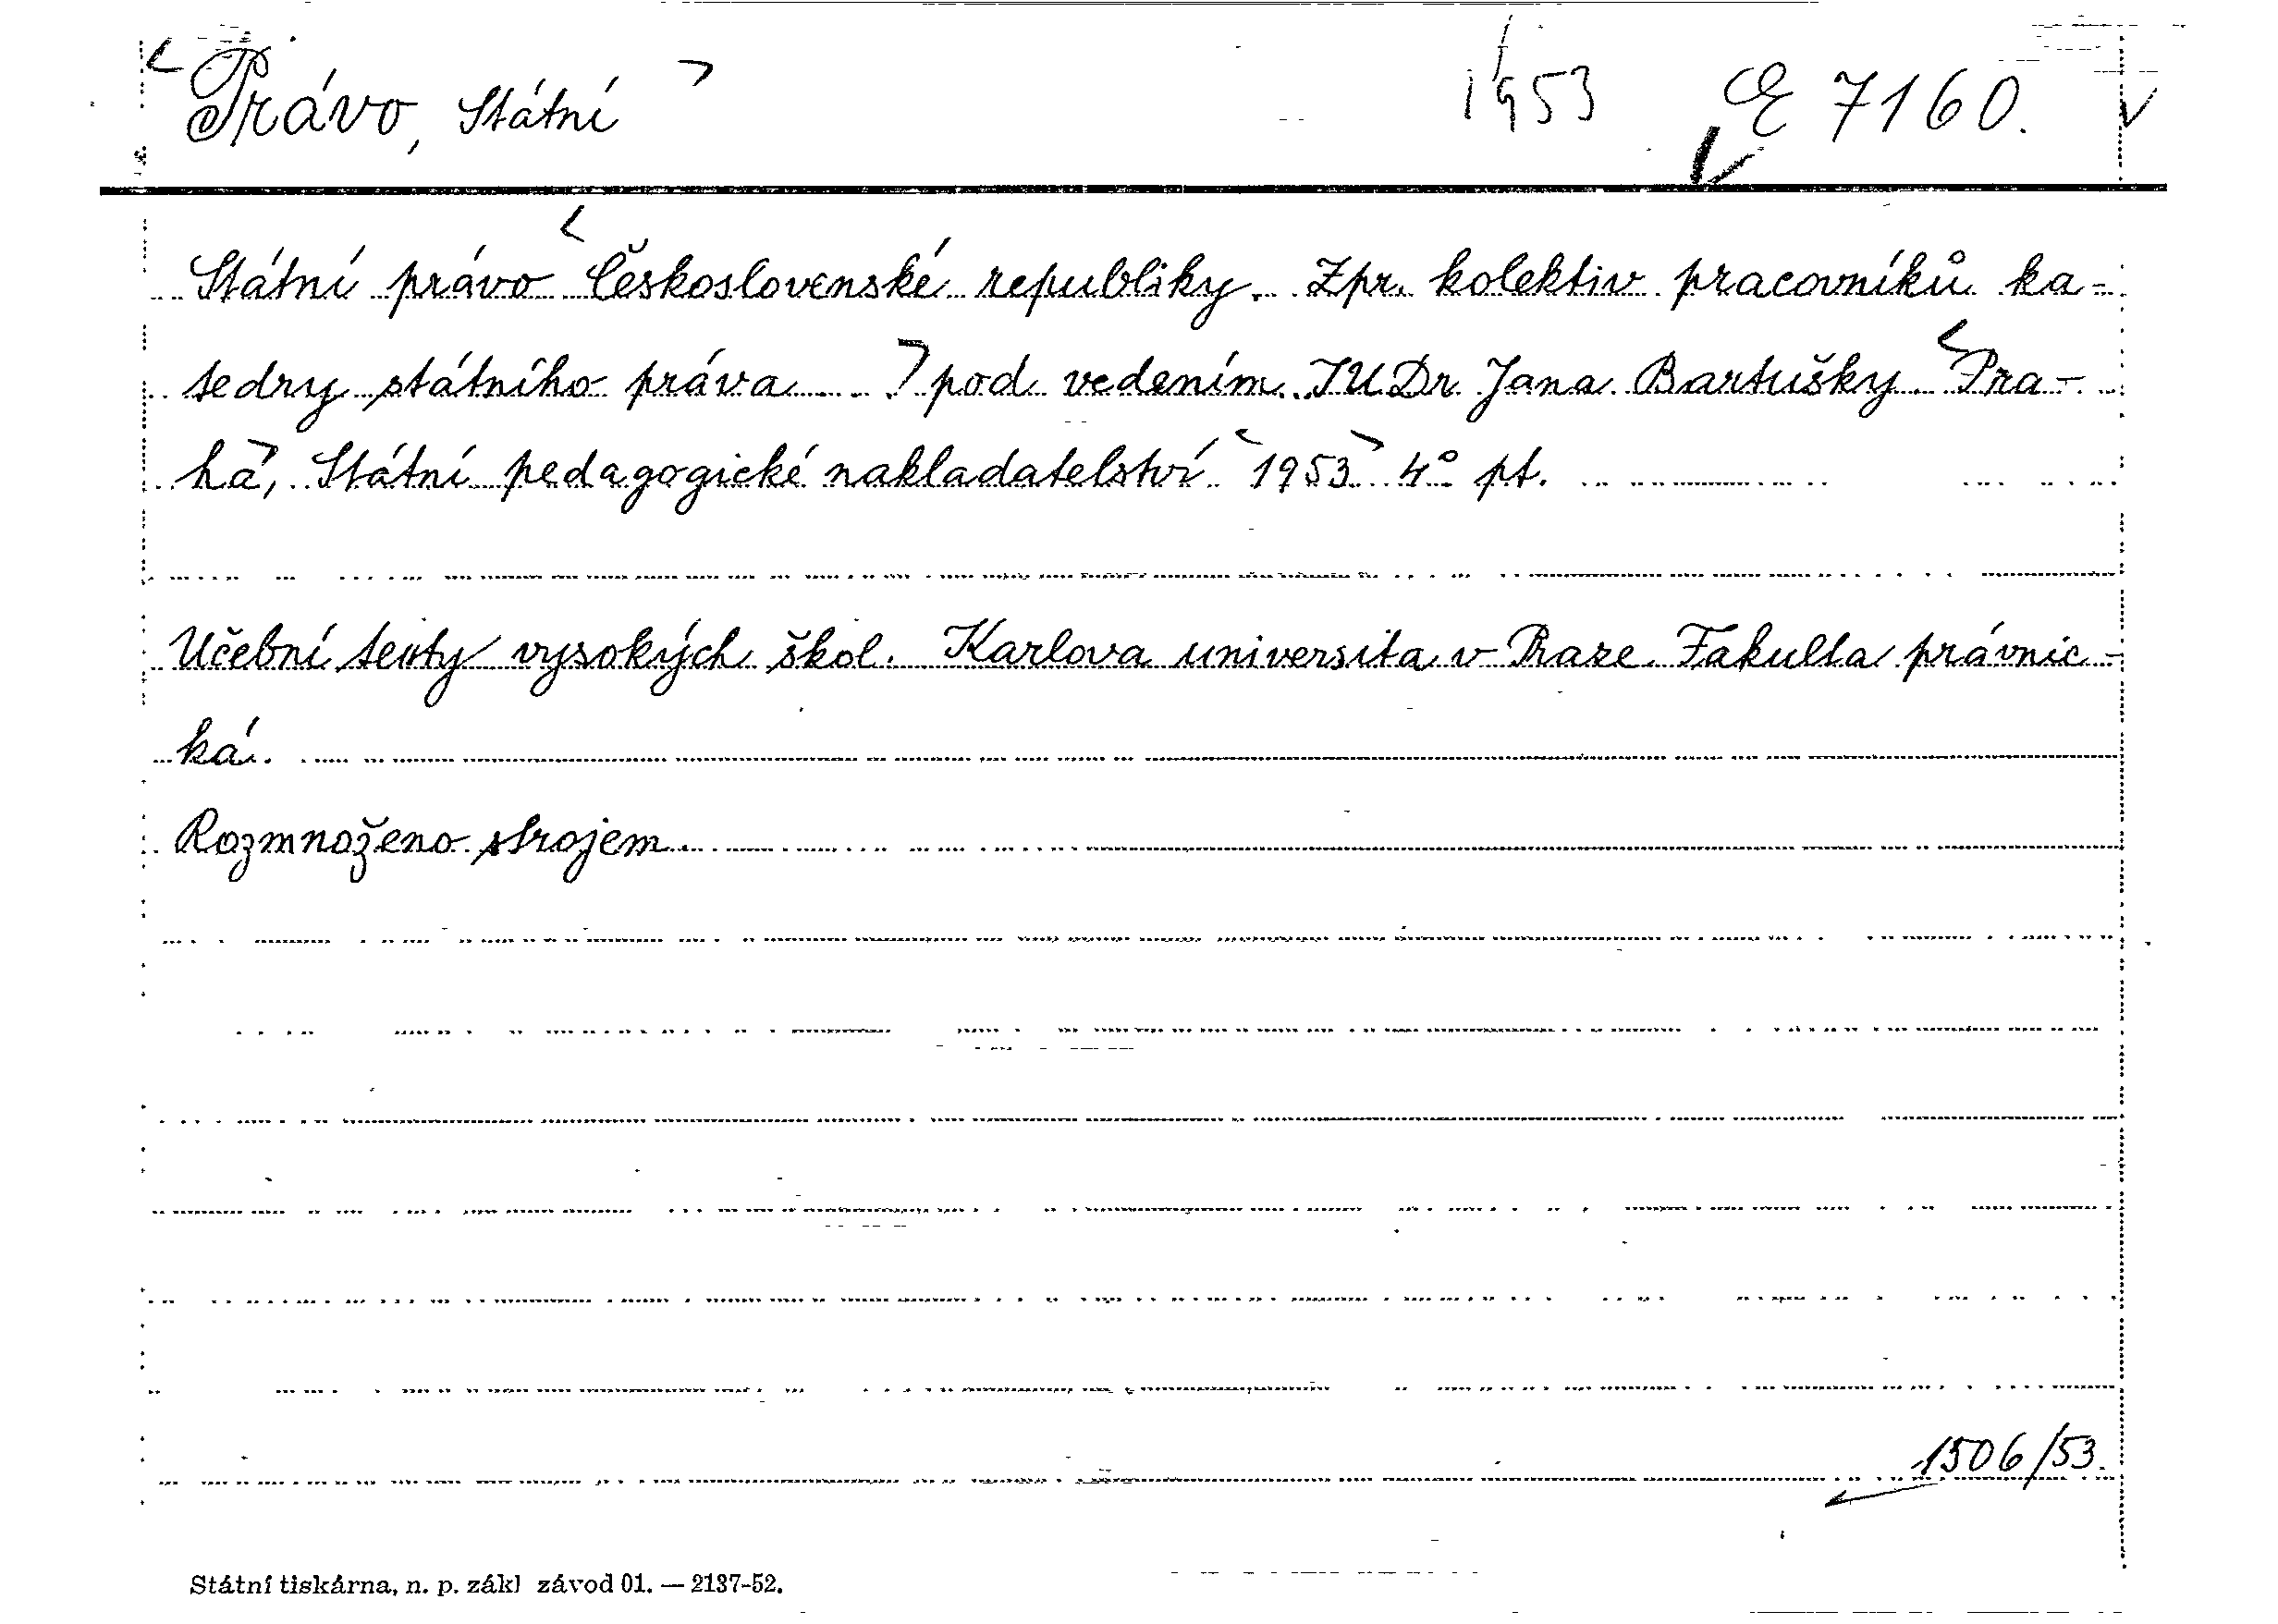 Právo, Státní 1953 E 7160.
Státní právo Československé republiky. Zpr. kolektiv pracovníků ka-
tedry státního práva ... pod vedením JUDr Jana Bartušky. Pra-
ha, Státní pedagogické nakladatelství 1953 4° pt.
Učební texty vysokých škol. Karlova universita v Praze. Fakulta právnic-
ká.
Rozmnoženo strojem.
1506/53.
Státní tiskárna, n. p. zákl závod 01. — 2137-52.